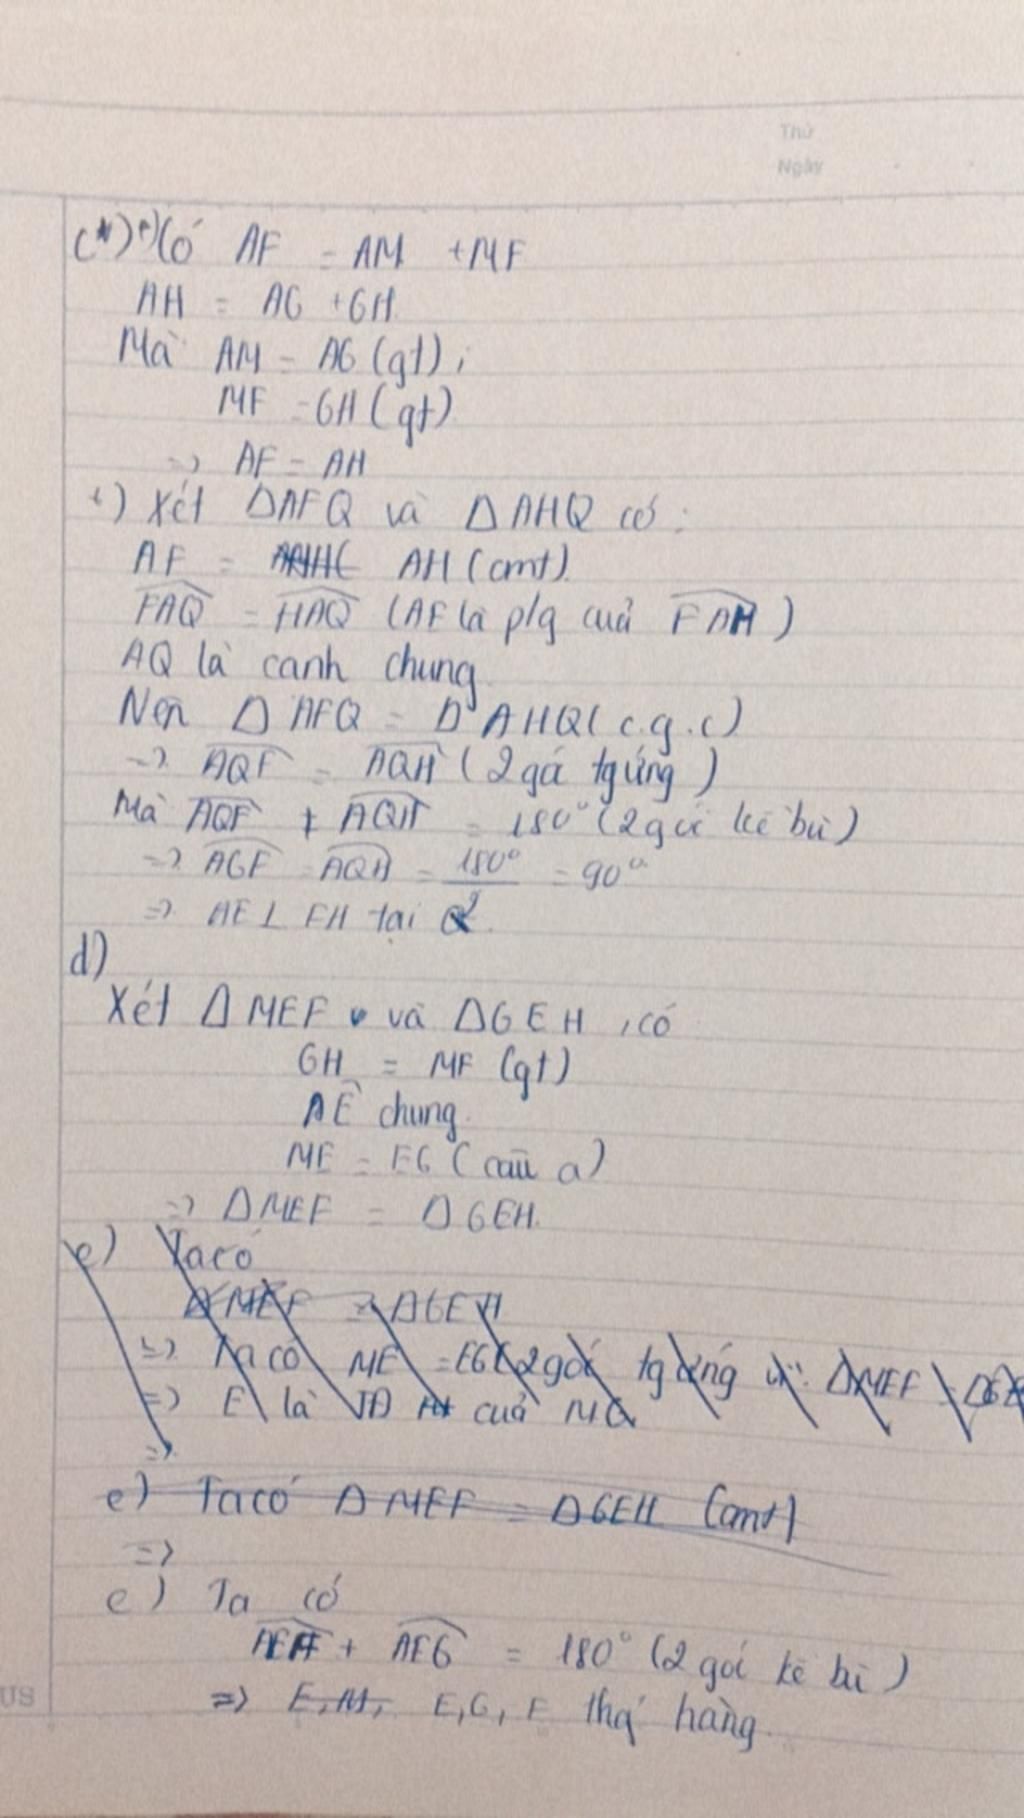 Thứ
Ngày
c*) +) Có AF = AM + MF
AH = AG + GH
Mà AM = AG (gt),
MF = GH (gt)
=> AF = AH
+) Xét ΔAFQ và ΔAHQ có:
AF = AH (cmt)
FAQ = HAQ (AF là p/g cuả FAH)
AQ là canh chung
Nên ΔAFQ = ΔAHQ (c.g.c)
=> AQF = AQH (2 gó tg ứng)
Mà AQF + AQH = 180° (2 gói kề bù)
=> AGF = AQH = 180°/2 = 90°
=> AE ⊥ FH tại Q
d)
Xét ΔMEF và ΔGEH, có
GH = MF (gt)
AE chung
ME = EG (câu a)
=> ΔMEF = ΔGEH.
e) Ta có
ΔMEF = ΔGEH
=> Ta có ME = EG (2 gói tg ứng vì: ΔMEF = ΔGE
=> E là TĐ cuả MG
=>
e) Ta có ΔMEF = ΔGEH (cmt)
=>
e) Ta có
+ AEG = 180° (2 gói kề bù)
=> E, M, E, G, F thg hàng
US